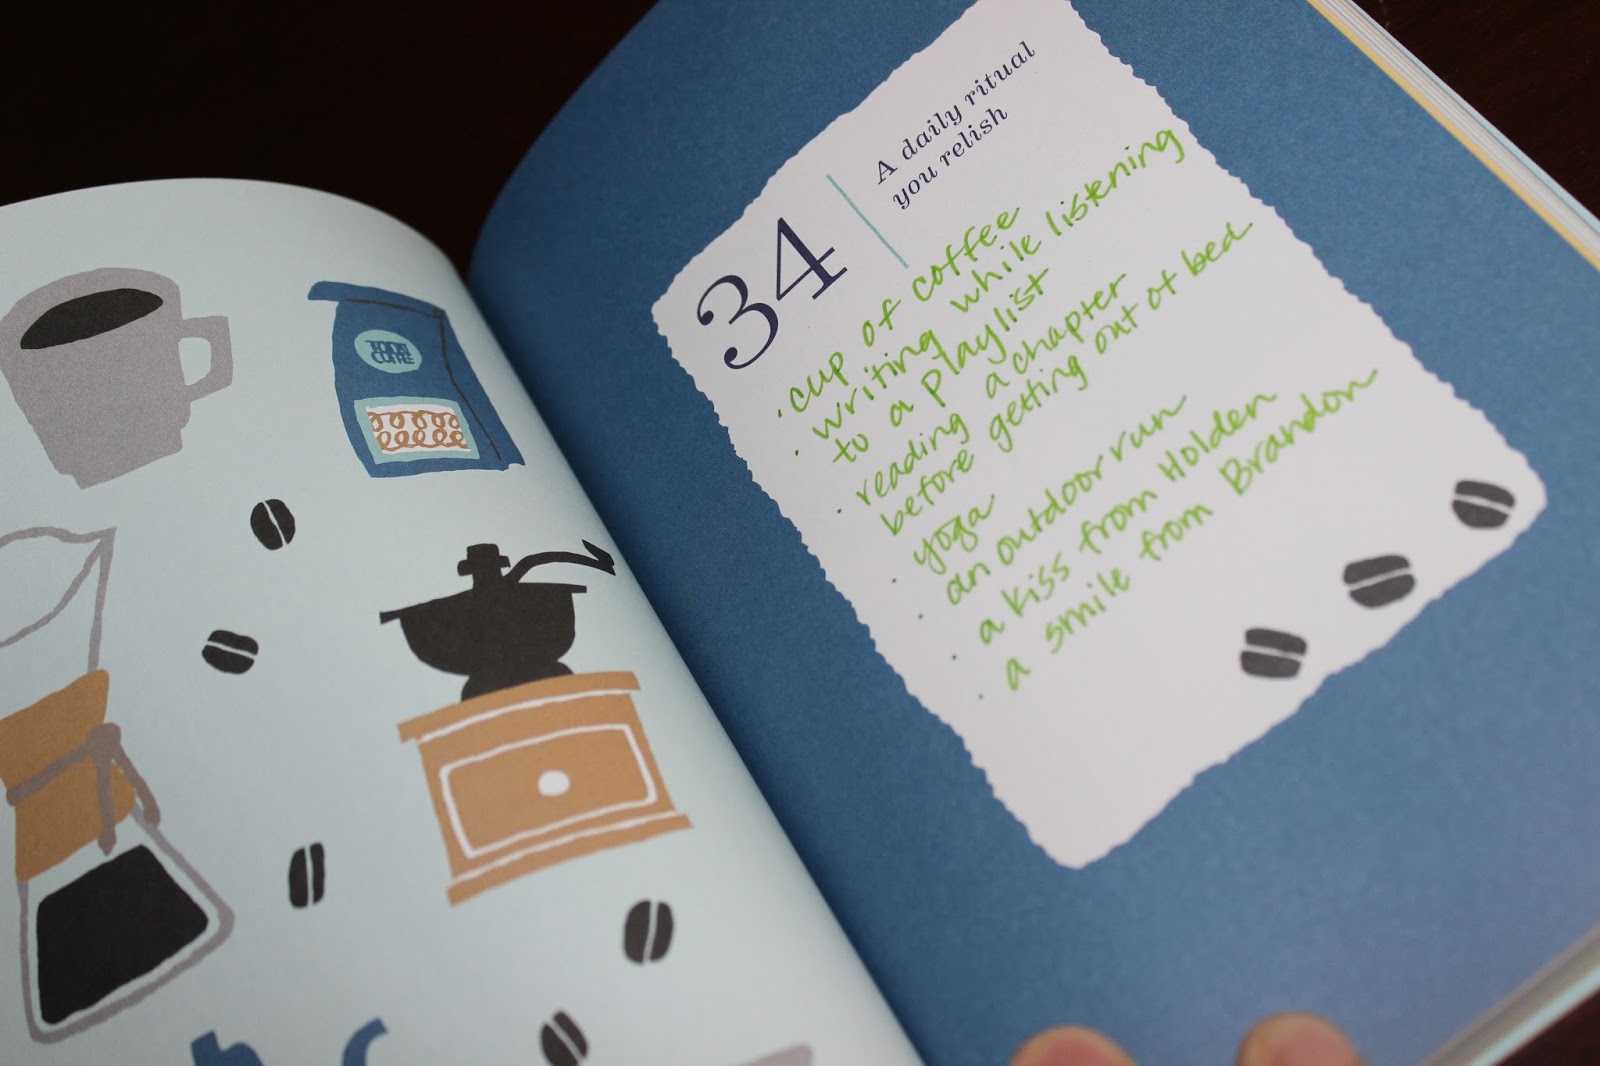 34
A daily ritual
you relish
· cup of coffee
· writing while listening
to a playlist
· reading a chapter
before getting out of bed
· yoga
· an outdoor run
· a kiss from Holden
· a smile from Brandon
COFFEE